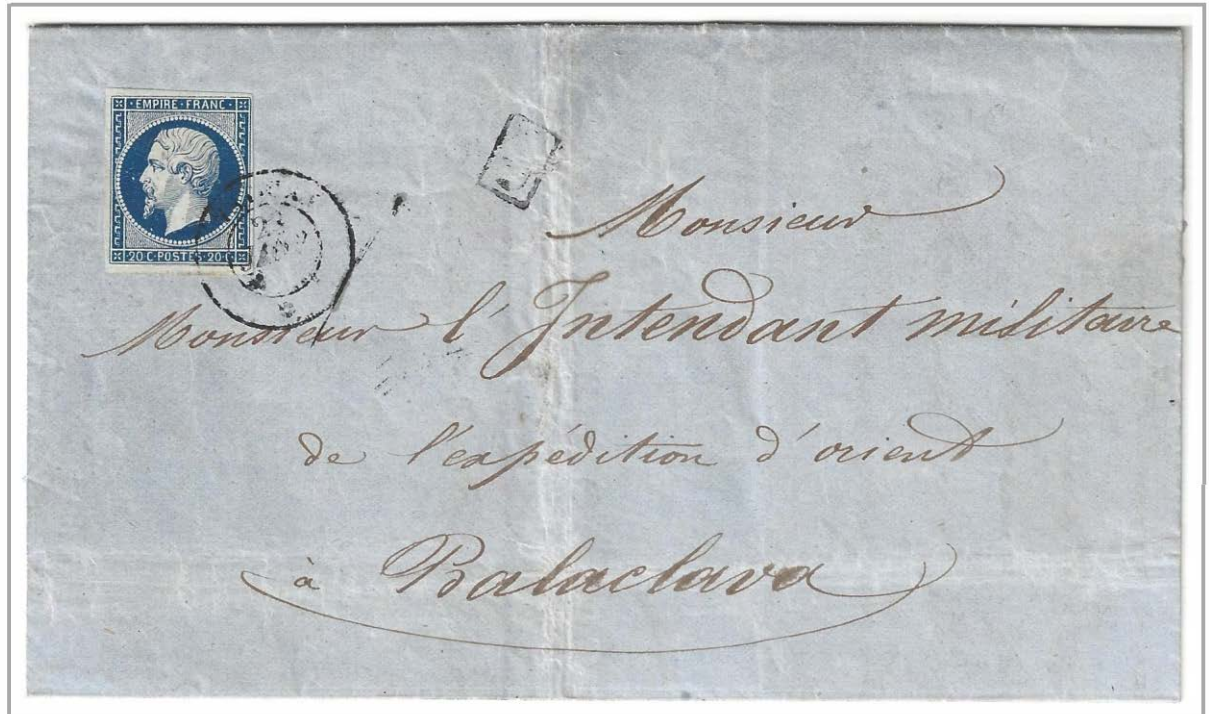 EMPIRE · FRANC ·
20 C · POSTES · 20 C
Monsieur
Monsieur l'Intendant militaire
de l'expédition d'orient
à Balaclava